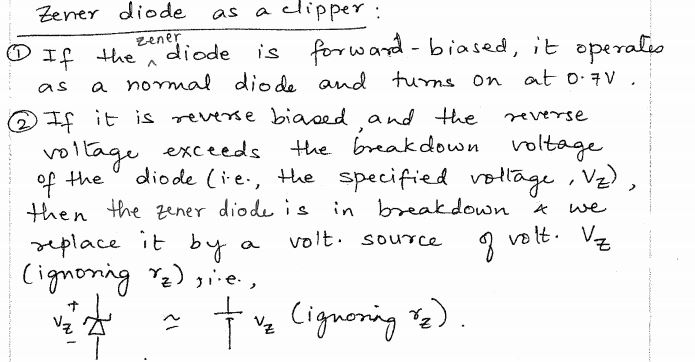 Zener diode as a clipper :
① If the zener diode is forward-biased, it operates
as a normal diode and turns on at 0.7V .
② If it is reverse biased, and the reverse
voltage exceeds the breakdown voltage
of the diode (i.e., the specified voltage, V_Z),
then the zener diode is in breakdown & we
replace it by a volt. source of volt. V_Z
(ignoring r_z), i.e.,
+ V_Z - ≃ V_Z (ignoring r_z).